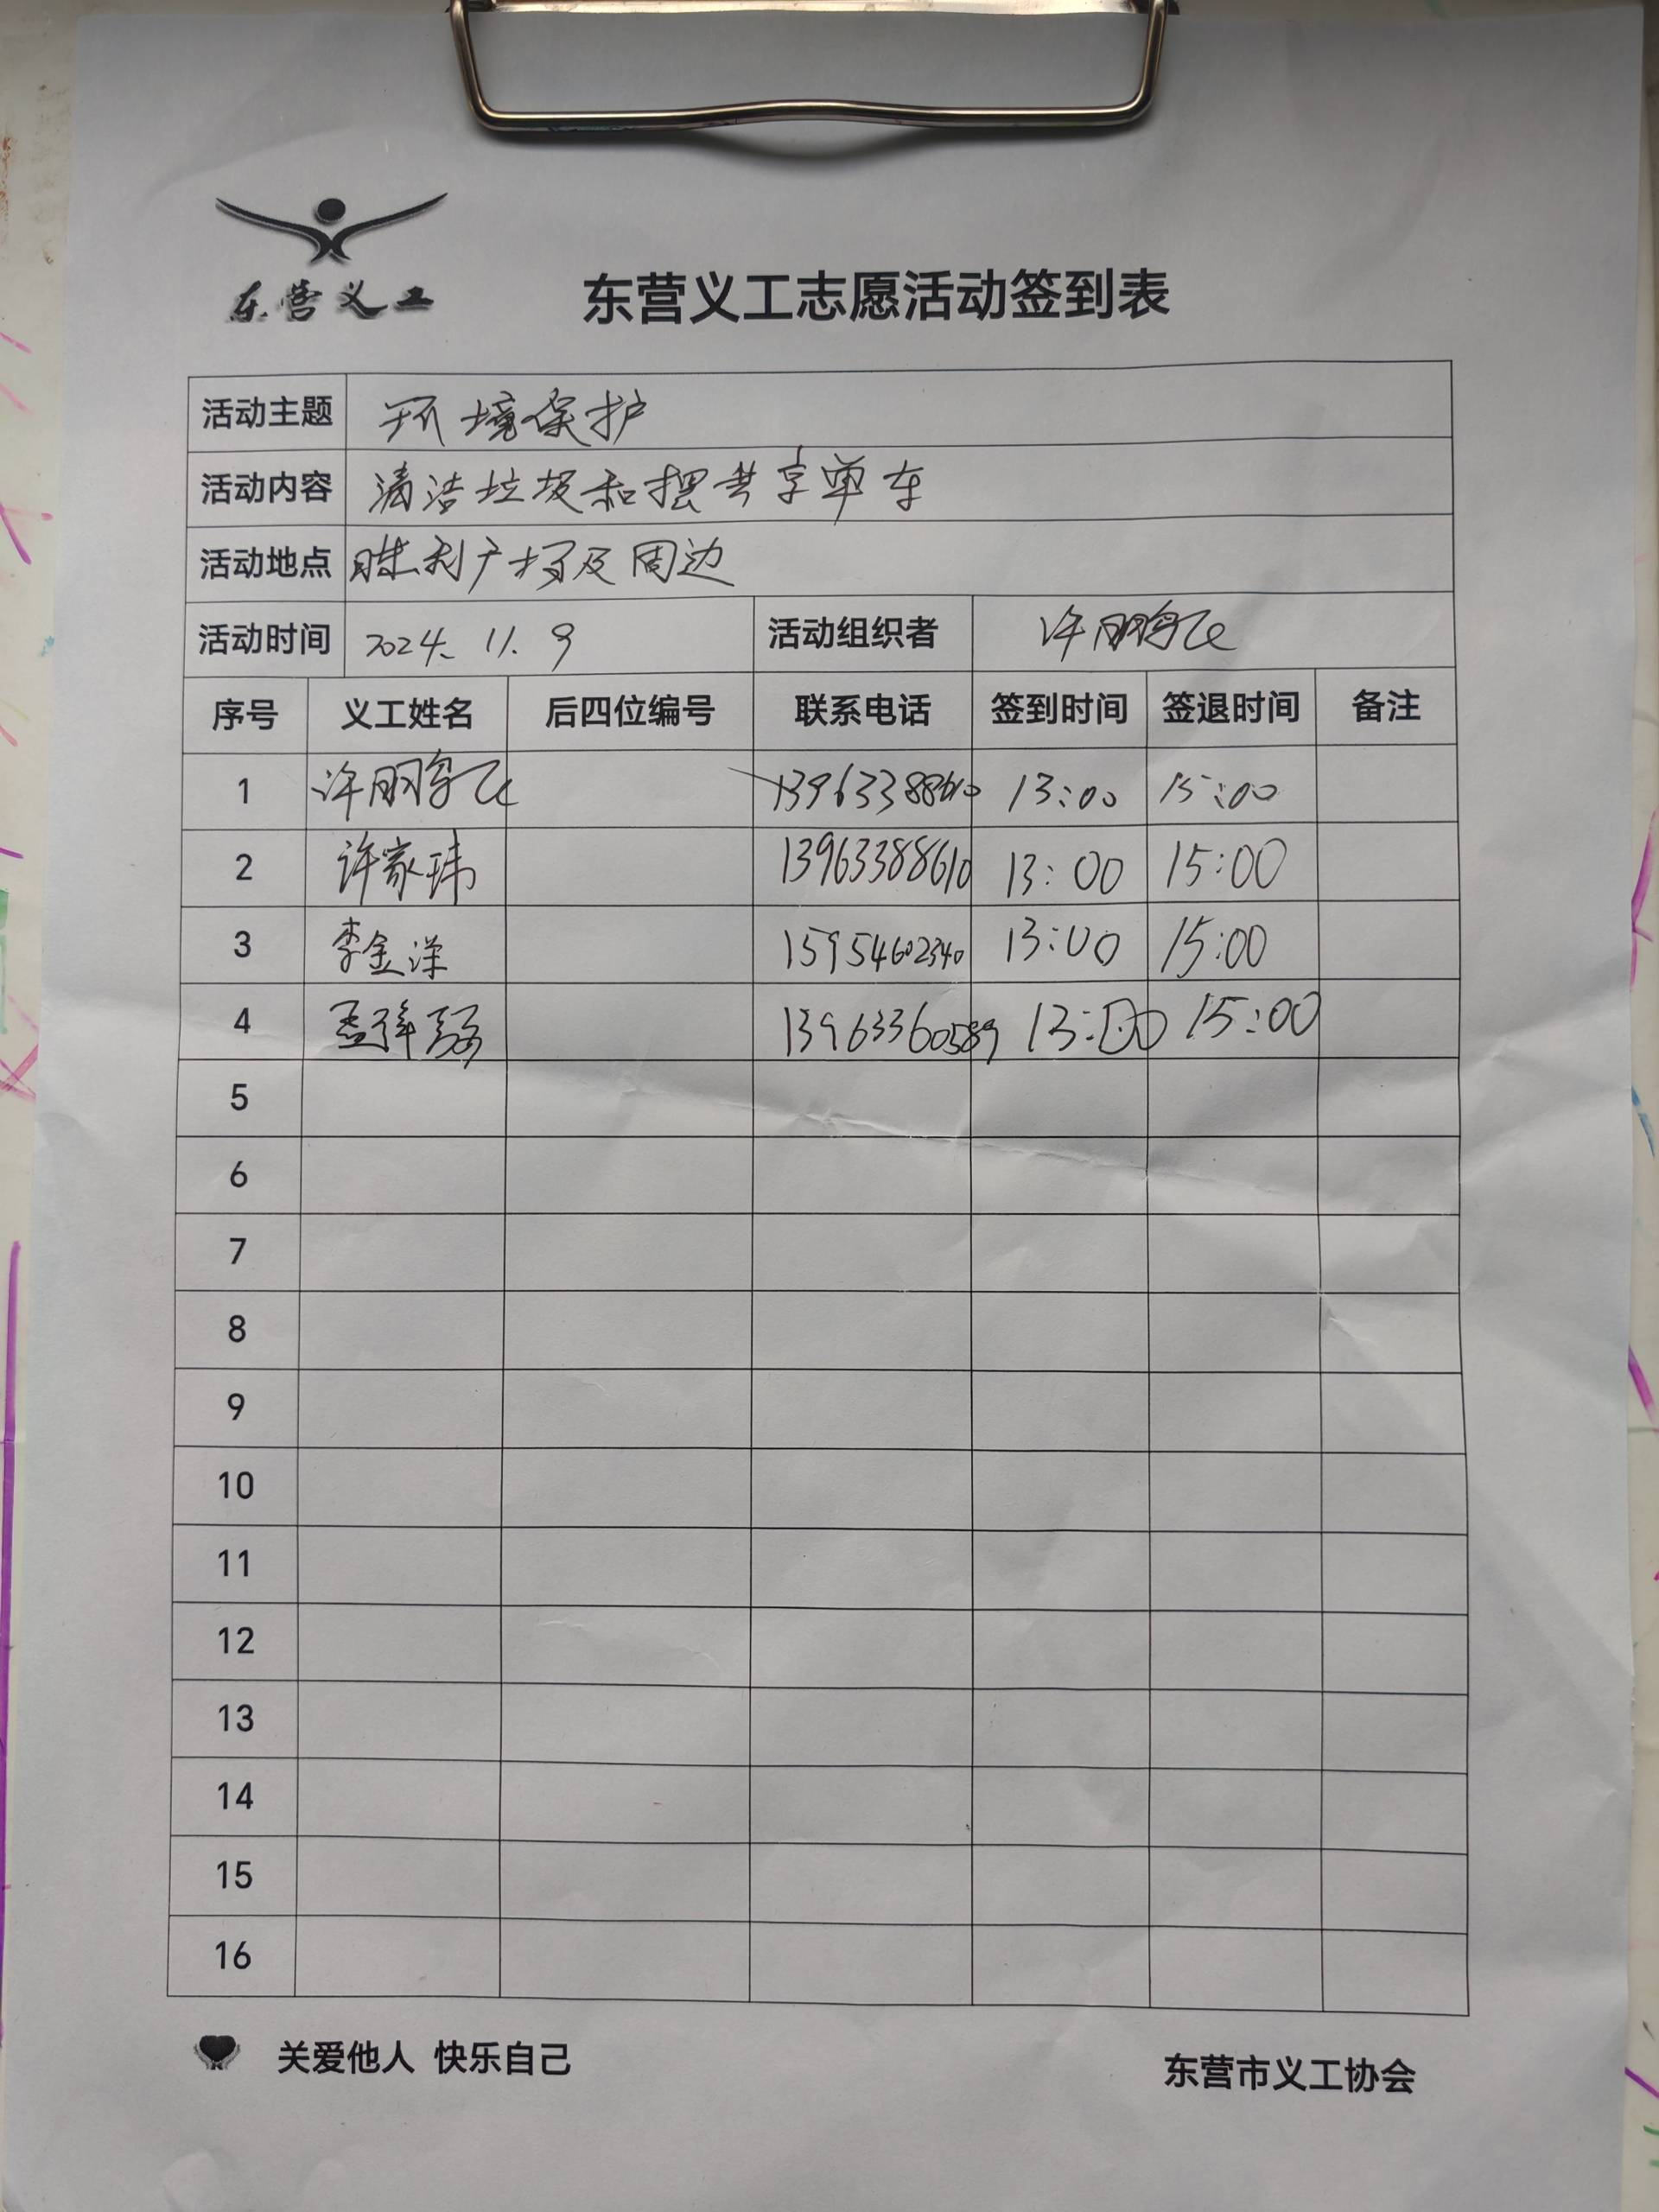 东营义工
东营义工志愿活动签到表
活动主题 环境保护
活动内容 清洁垃圾和摆共享单车
活动地点 胜利广场及周边
活动时间 2024.11.9 活动组织者 许鹏飞
序号 义工姓名 后四位编号 联系电话 签到时间 签退时间 备注
1 许鹏飞 13963388610 13:00 15:00
2 许家玮 13963388610 13:00 15:00
3 李金洋 15954602340 13:00 15:00
4 13963360589 13:00 15:00
5
6
7
8
9
10
11
12
13
14
15
16
关爱他人 快乐自己 东营市义工协会